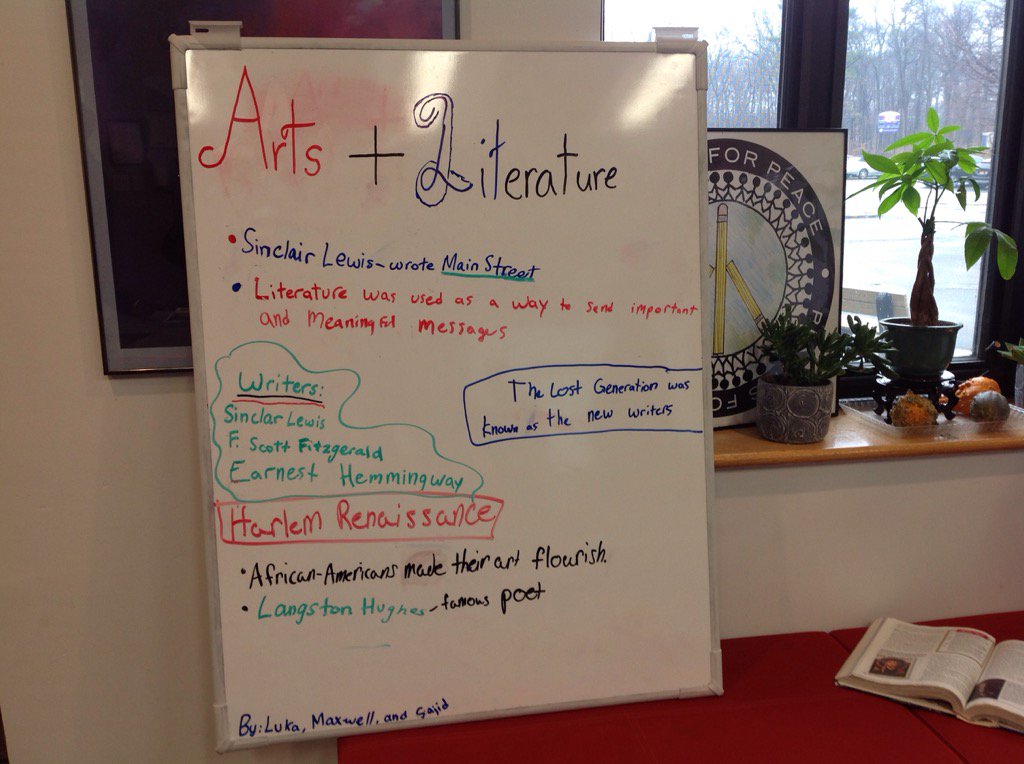 Arts + Literature
• Sinclair Lewis - wrote Main Street
• Literature was used as a way to send important
and Meaningful messages
Writers:
Sinclar Lewis
F. Scott Fitzgerald
Earnest Hemmingway
The Lost Generation was
known as the new writers
Harlem Renaissance
• African-Americans made their art flourish.
• Langston Hughes - famous poet
By: Luka, Maxwell, and Sajid
FOR PEACE